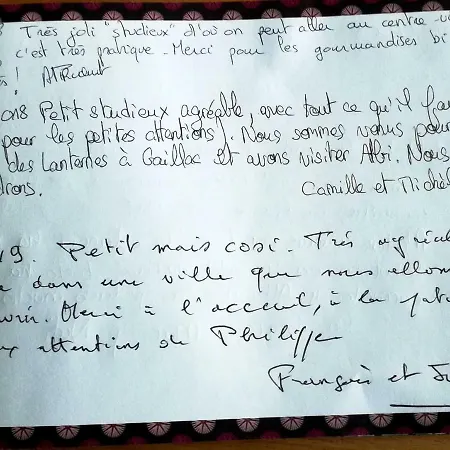 Très joli "studieux" d'où on peut aller au centre-v
c'est très pratique. Merci pour les gourmandises bi
s!
018 Petit studieux agréable, avec tout ce qu'il fau
pour les petites attentions). Nous sommes venus pour
des Lanternes à Gaillac et avons visiter Albi. Nous
drons. Camille et Michèl
19. Petit mais cosi. Très agréab
dans une ville que nous allons
Merci à l'acceuil, à la
attentions de Philippe
François et